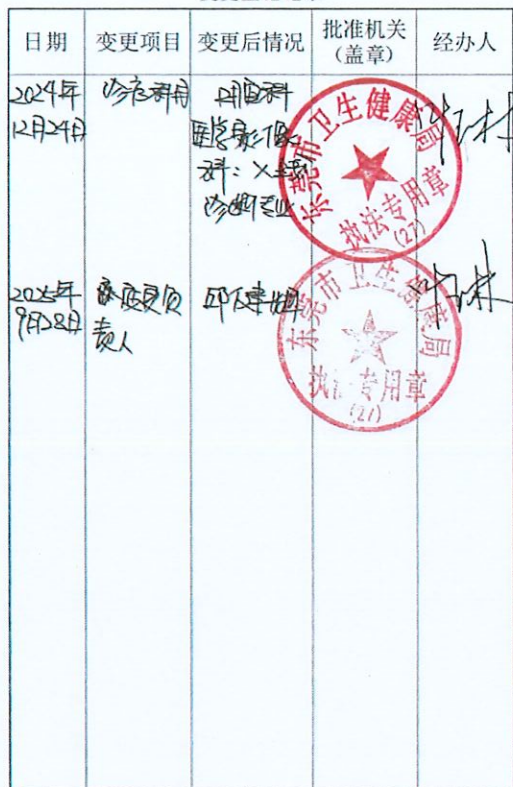 日期 变更项目 变更后情况 批准机关(盖章) 经办人
2024年 诊疗科目 口腔科
12月24日 医学影像
科：X线
诊断专业
东莞市卫生健康局
执法专用章
(27)
2025年 主要负
9月28日 责人
东莞市卫生健康局
执法专用章
(27)